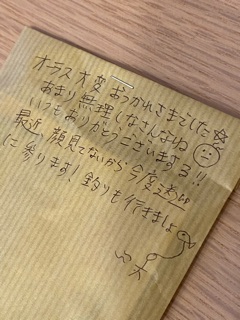 オーラス大変おつかれさまでした
あまり無理しなさんなね
いつもありがとうございまする!!
最近顔見てないから今度
に参ります!釣りも行きましょ